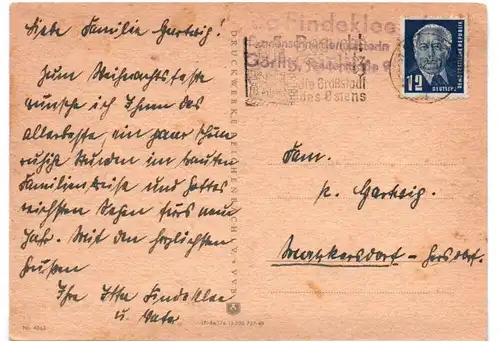 Liebe Familie Gartwig!
Zum Weihnachtsfeste
wünsche ich Ihnen das
allerbeste, ein paar schöne
ruhige Stunden im trauten
Familienkreise und Gottes
reichsten Segen fürs neue
Jahr. Mit den herzlichsten
Grüßen
Ihre Itta Findeklee
u. Vater
Nr. 4063
DRUCKWERKE REICHENBACH V. VVB
Findeklee
Görlitz
Großstadt
des Ostens
12
DEUTSCHE
DEMOKRATISCHE REPUBLIK
Fam.
P. Gartwig.
Markersdorf – Gersdorf.